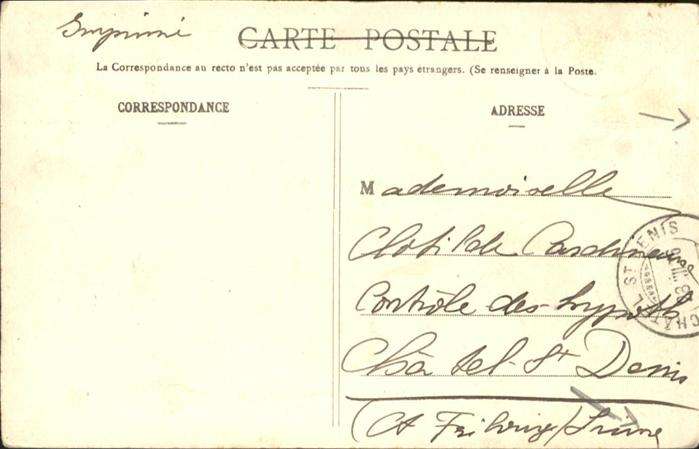 Imprimé
CARTE POSTALE
La Correspondance au recto n'est pas acceptée par tous les pays etrangers. (Se renseigner à la Poste.
CORRESPONDANCE
ADRESSE
Mademoiselle
Clotilde
Contrôle des hypoth
Châtel-St Denis
(Ct Fribourg) Suisse
CHÂTEL ST DENIS